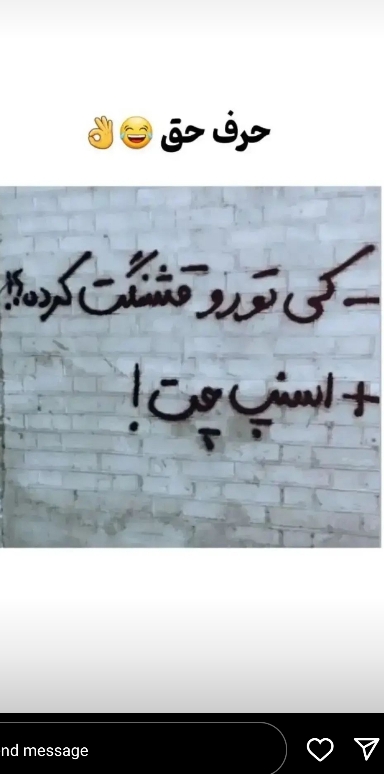 حرف حق 😂👌
– کی تورو قشنگت کرده؟!
+ اسنپ چت !
nd message